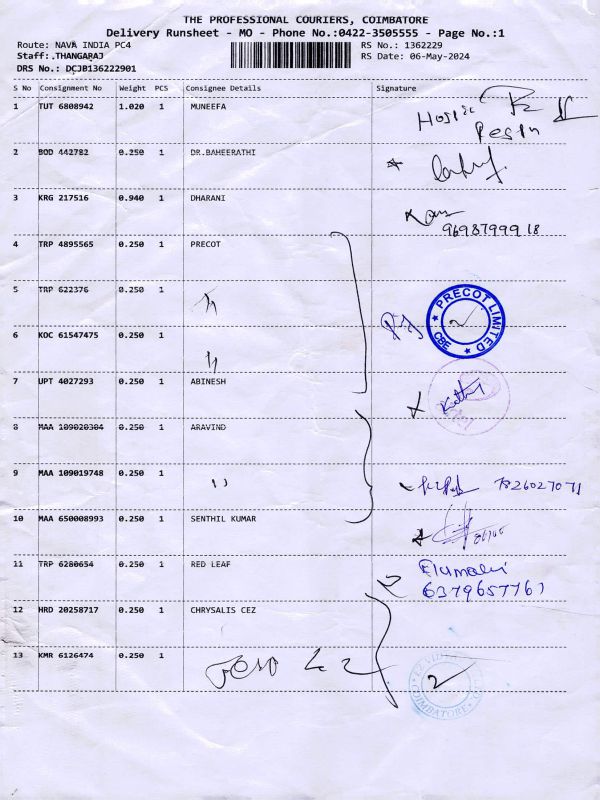 THE PROFESSIONAL COURIERS, COIMBATORE
Delivery Runsheet - MO - Phone No.:0422-3505555 - Page No.:1
Route: NAVA INDIA PC4 RS No.: 1362229
Staff:.THANGARAJ RS Date: 06-May-2024
DRS No.: DCJB136222901
S No Consignment No Weight PCS Consignee Details Signature
1 TUT 6808942 1.020 1 MUNEEFA
2 BOD 442782 0.250 1 DR.BAHEERATHI
3 KRG 217516 0.940 1 DHARANI
9698799918
4 TRP 4895565 0.250 1 PRECOT
5 TRP 622376 0.250 1
PRECOT LIMITED
CBE
6 KOC 61547475 0.250 1
7 UPT 4027293 0.250 1 ABINESH
8 MAA 109020304 0.250 1 ARAVIND
9 MAA 109019748 0.250 1 " 7826027071
10 MAA 650008993 0.250 1 SENTHIL KUMAR
11 TRP 6280654 0.250 1 RED LEAF
Elumalai
6379657761
12 HRD 20258717 0.250 1 CHRYSALIS CEZ
13 KMR 6126474 0.250 1
COIMBATORE